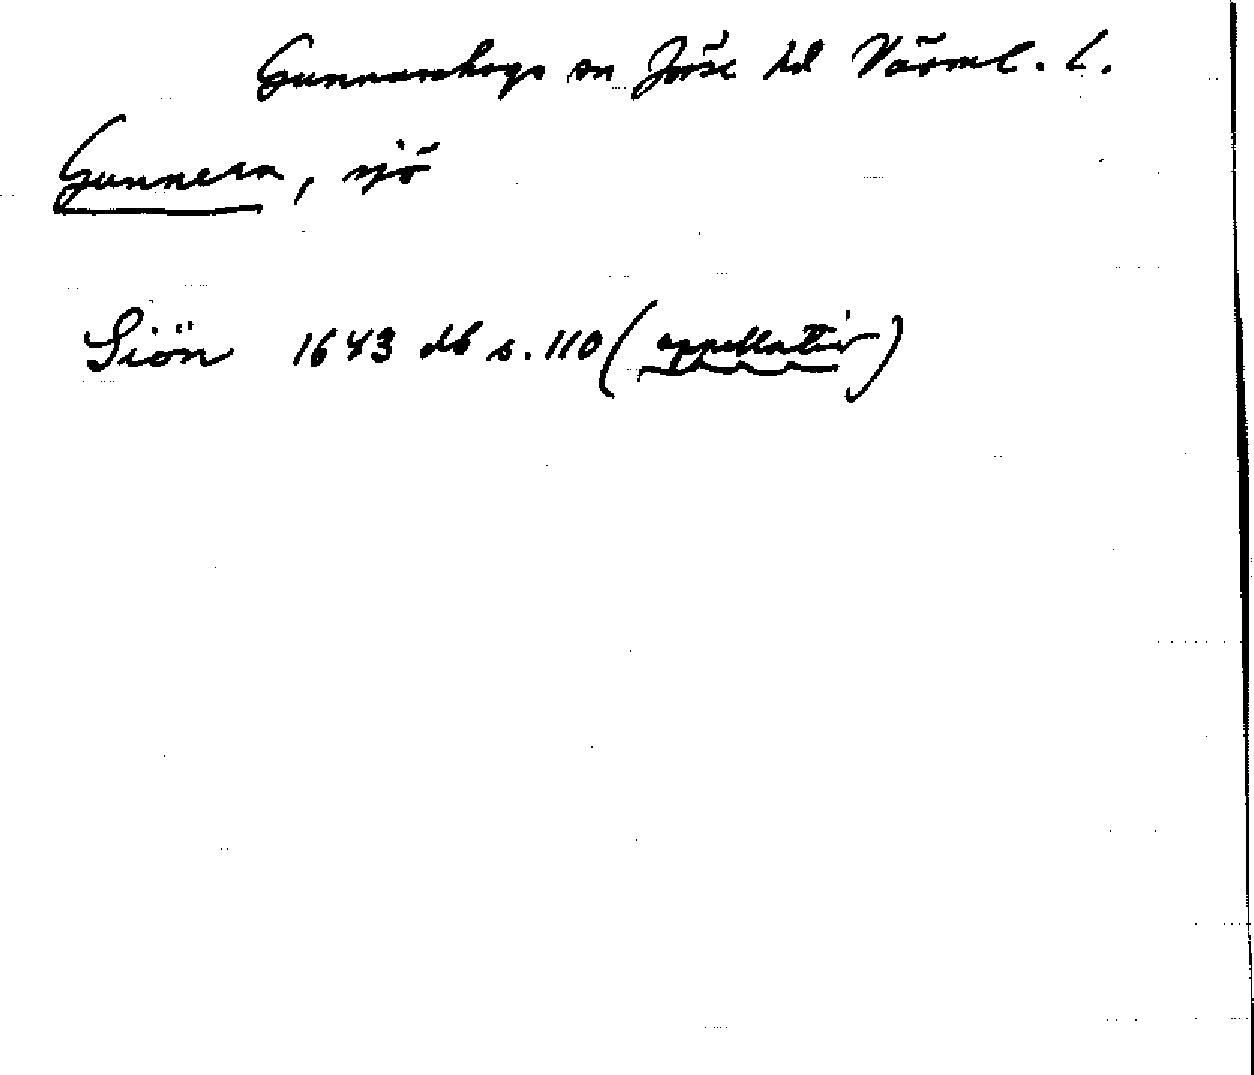 Gunnarskogs sn Jösse hd Värml. l.
Gunnern, sjö
Siön 1643 db s. 110 (appellativ)